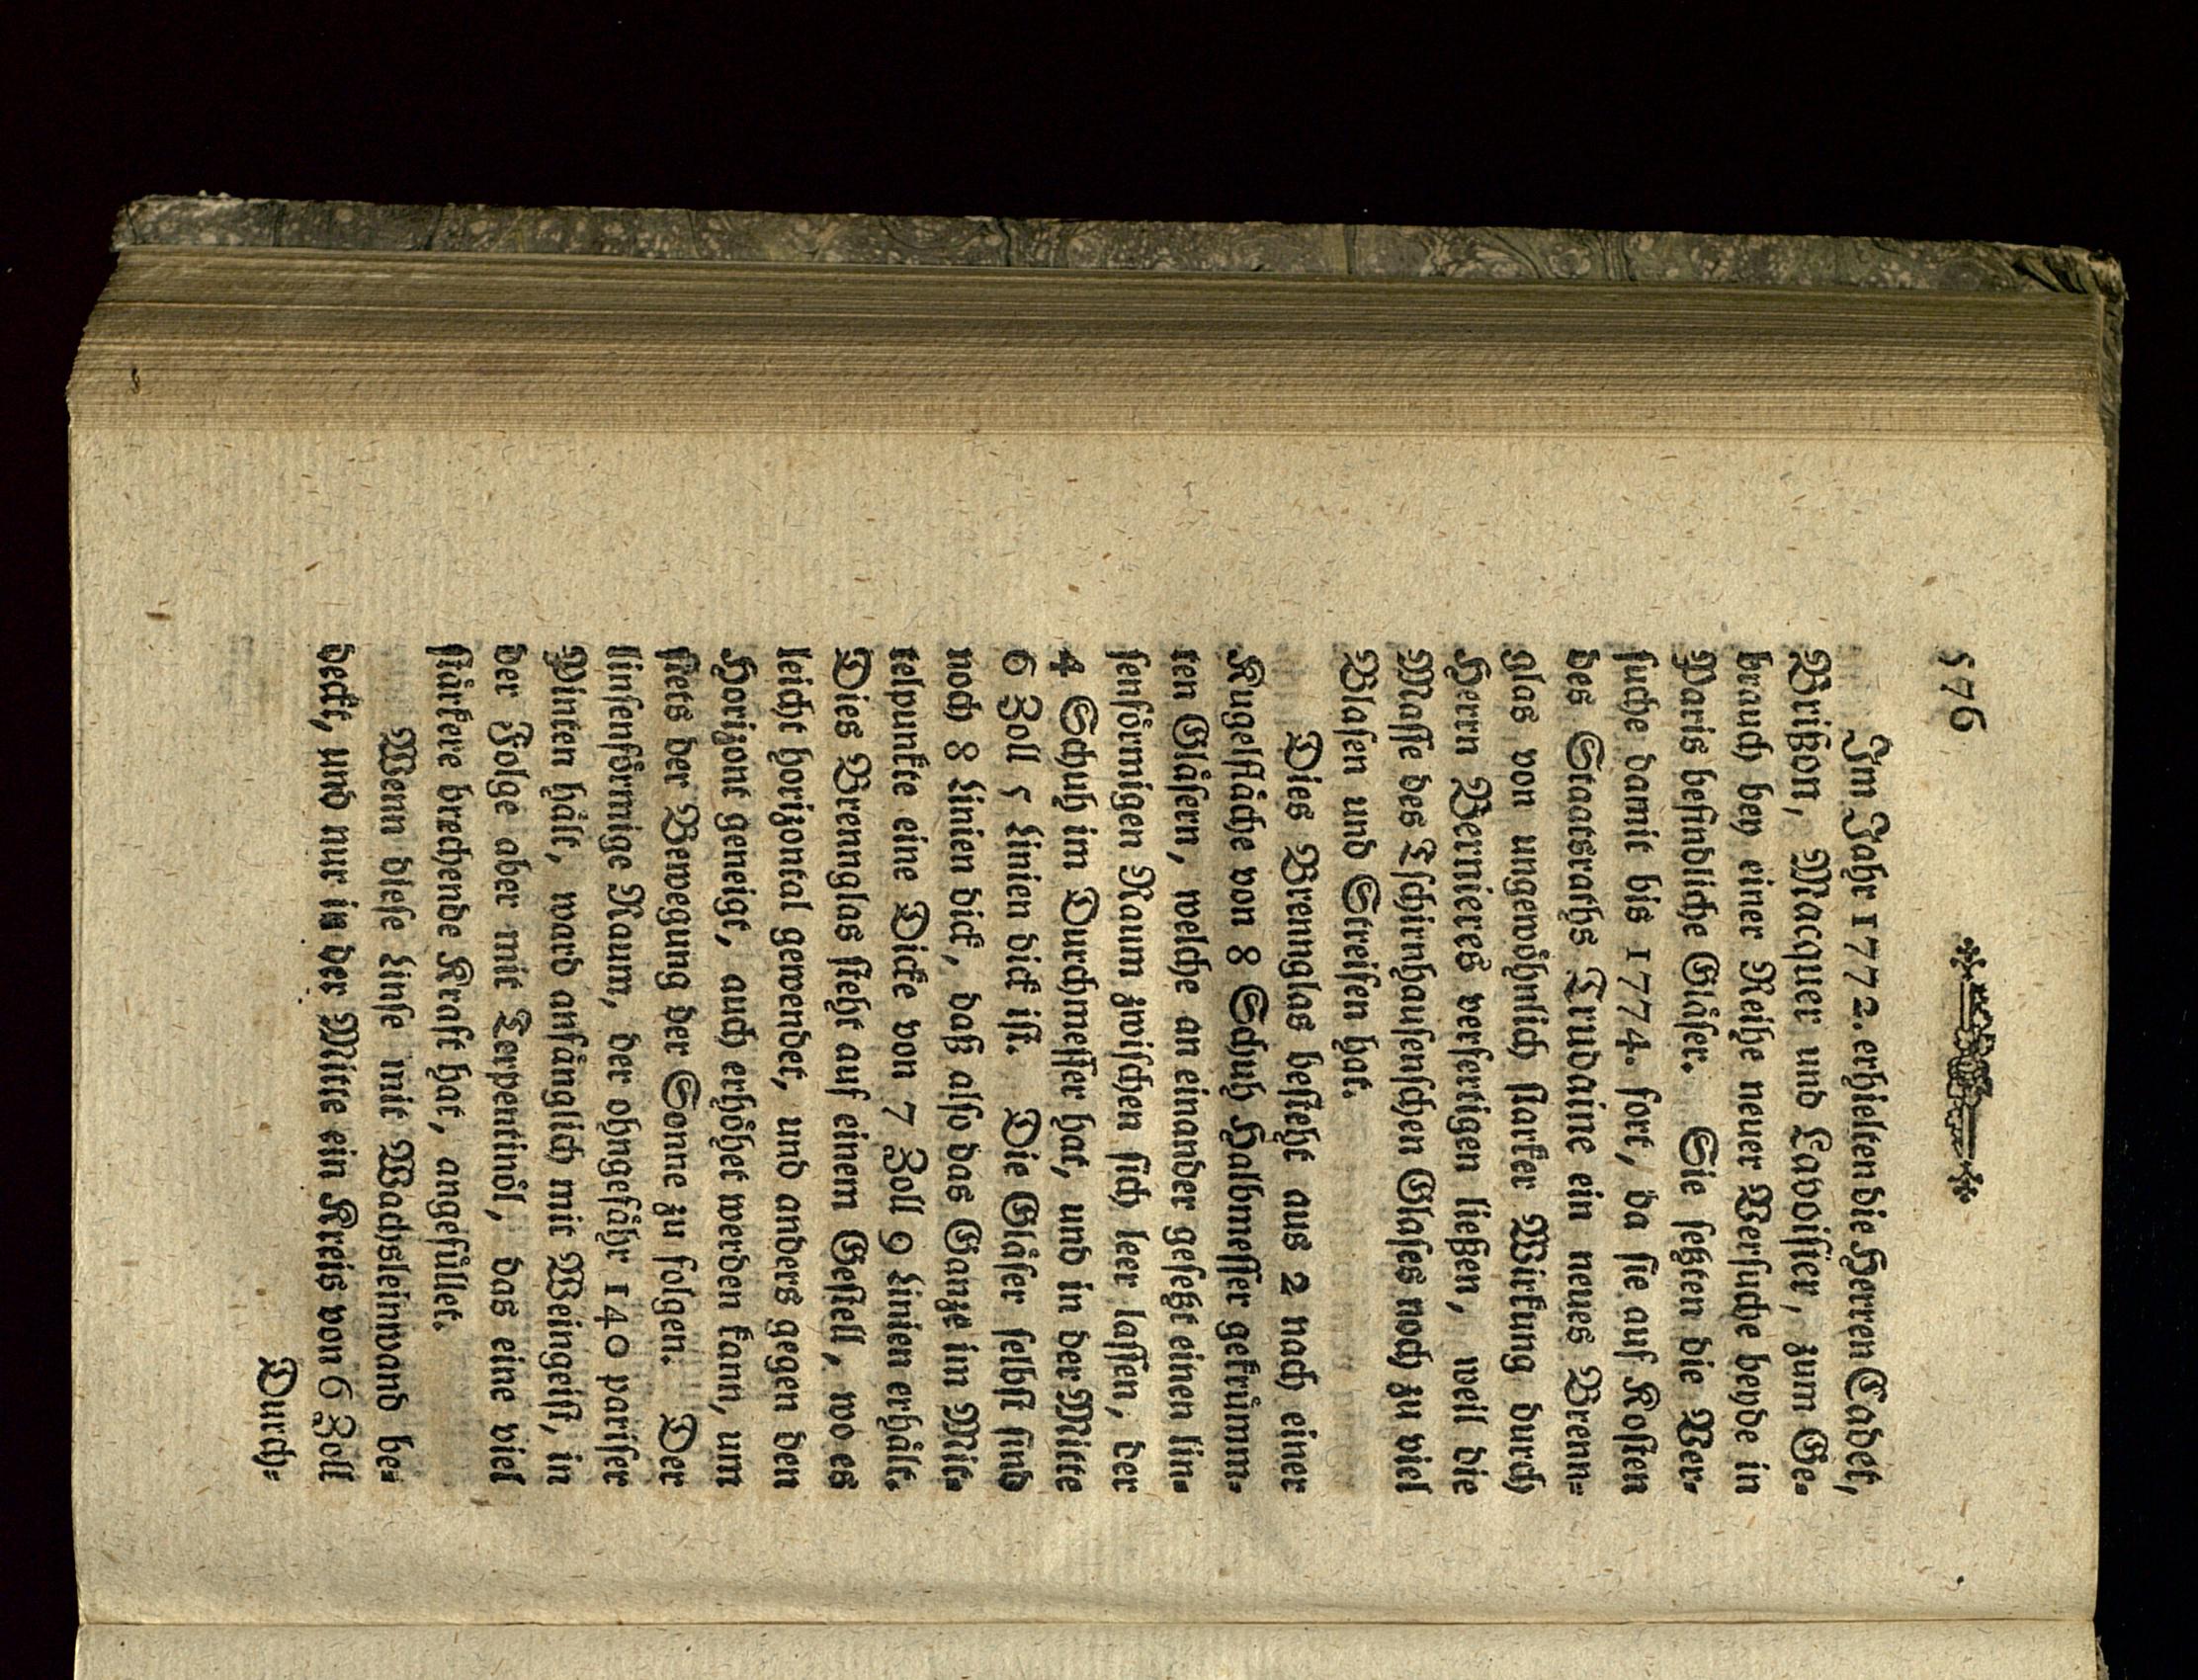 576
Im Jahr 1772. erhielten die Herren Cadet,
Brißon, Macquer und Lavoisier, zum Ge-
brauch bey einer Reihe neuer Versuche beyde in
Paris befindliche Gläser. Sie setzten die Ver-
suche damit bis 1774. fort, da sie auf Kosten
des Staatsraths Trudaine ein neues Brenn-
glas von ungewöhnlich starker Wirkung durch
Herrn Bernieres verfertigen ließen, weil die
Masse des Tschirnhausenschen Glases noch zu viel
Blasen und Streifen hat.
Dies Brennglas besteht aus 2 nach einer
Kugelfläche von 8 Schuh Halbmesser gekrümm-
ten Gläsern, welche an einander gesetzt einen lin-
senförmigen Raum zwischen sich leer lassen, der
4 Schuh im Durchmesser hat, und in der Mitte
6 Zoll 5 Linien dick ist. Die Gläser selbst sind
noch 8 Linien dick, daß also das Ganze im Mit-
telpunkte eine Dicke von 7 Zoll 9 Linien erhält.
Dies Brennglas steht auf einem Gestell, wo es
leicht horizontal gewendet, und anders gegen den
Horizont geneigt, auch erhöhet werden kann, um
stets der Bewegung der Sonne zu folgen. Der
linsenförmige Raum, der ohngefähr 140 pariser
Pinten hält, ward anfänglich mit Weingeist, in
der Folge aber mit Terpentinöl, das eine viel
stärkere brechende Kraft hat, angefüllet.
Wenn diese Linse mit Wachsleinwand be-
deckt, und nur in der Mitte ein Kreis von 6 Zoll
Durch-